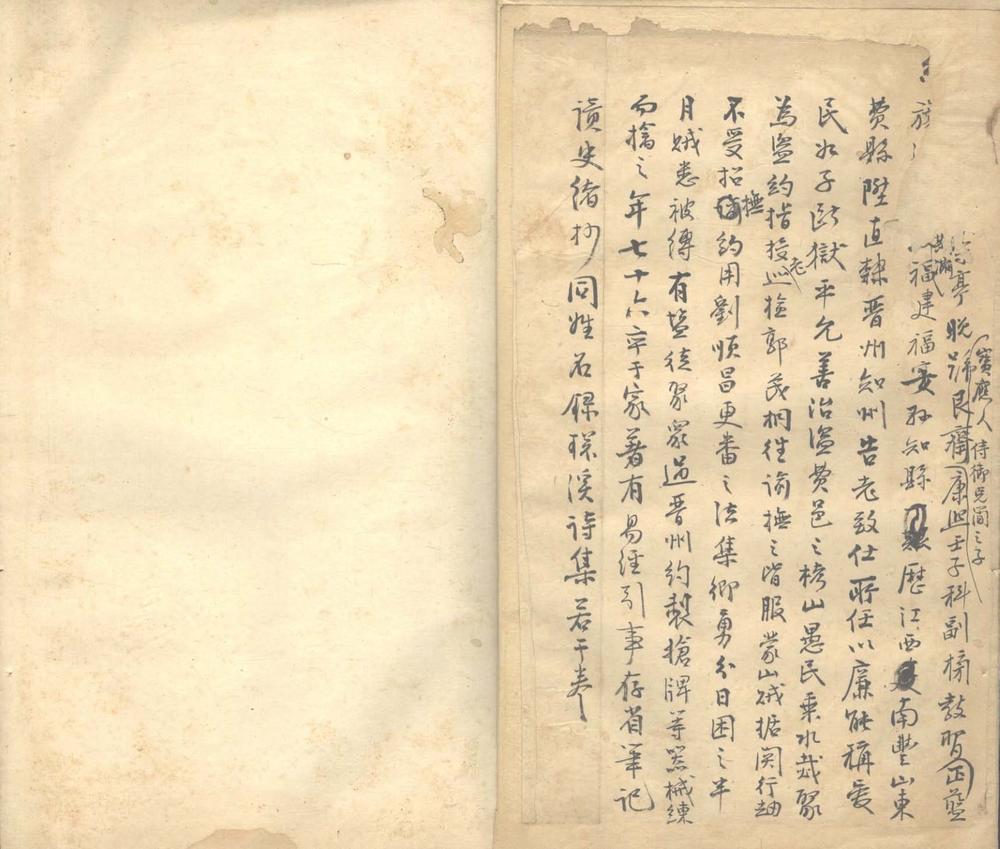 亭晚號艮齋康熙壬子科副榜教習正藍
寶應人侍御克簡之子
旗
福建福安縣知縣歷江西南豐山東
費縣陞直隸晋州知州告老致仕所任以廉能稱愛
民如子斷獄平允善治盜費邑之榜山愚民乘水烖聚
為盜約指授巡檢郭茂桐徃諭撫之皆服蒙山賊據関行刼
不受招撫約用劉順昌更番之法集鄉勇分日困之半
月賊悉被縛有鹽徒聚衆過晋州約製搶牌等器械練
而擒之年七十六卒于家著有易經引事存省筆記
讀史緒抄同姓名錄琛溪詩集若干卷